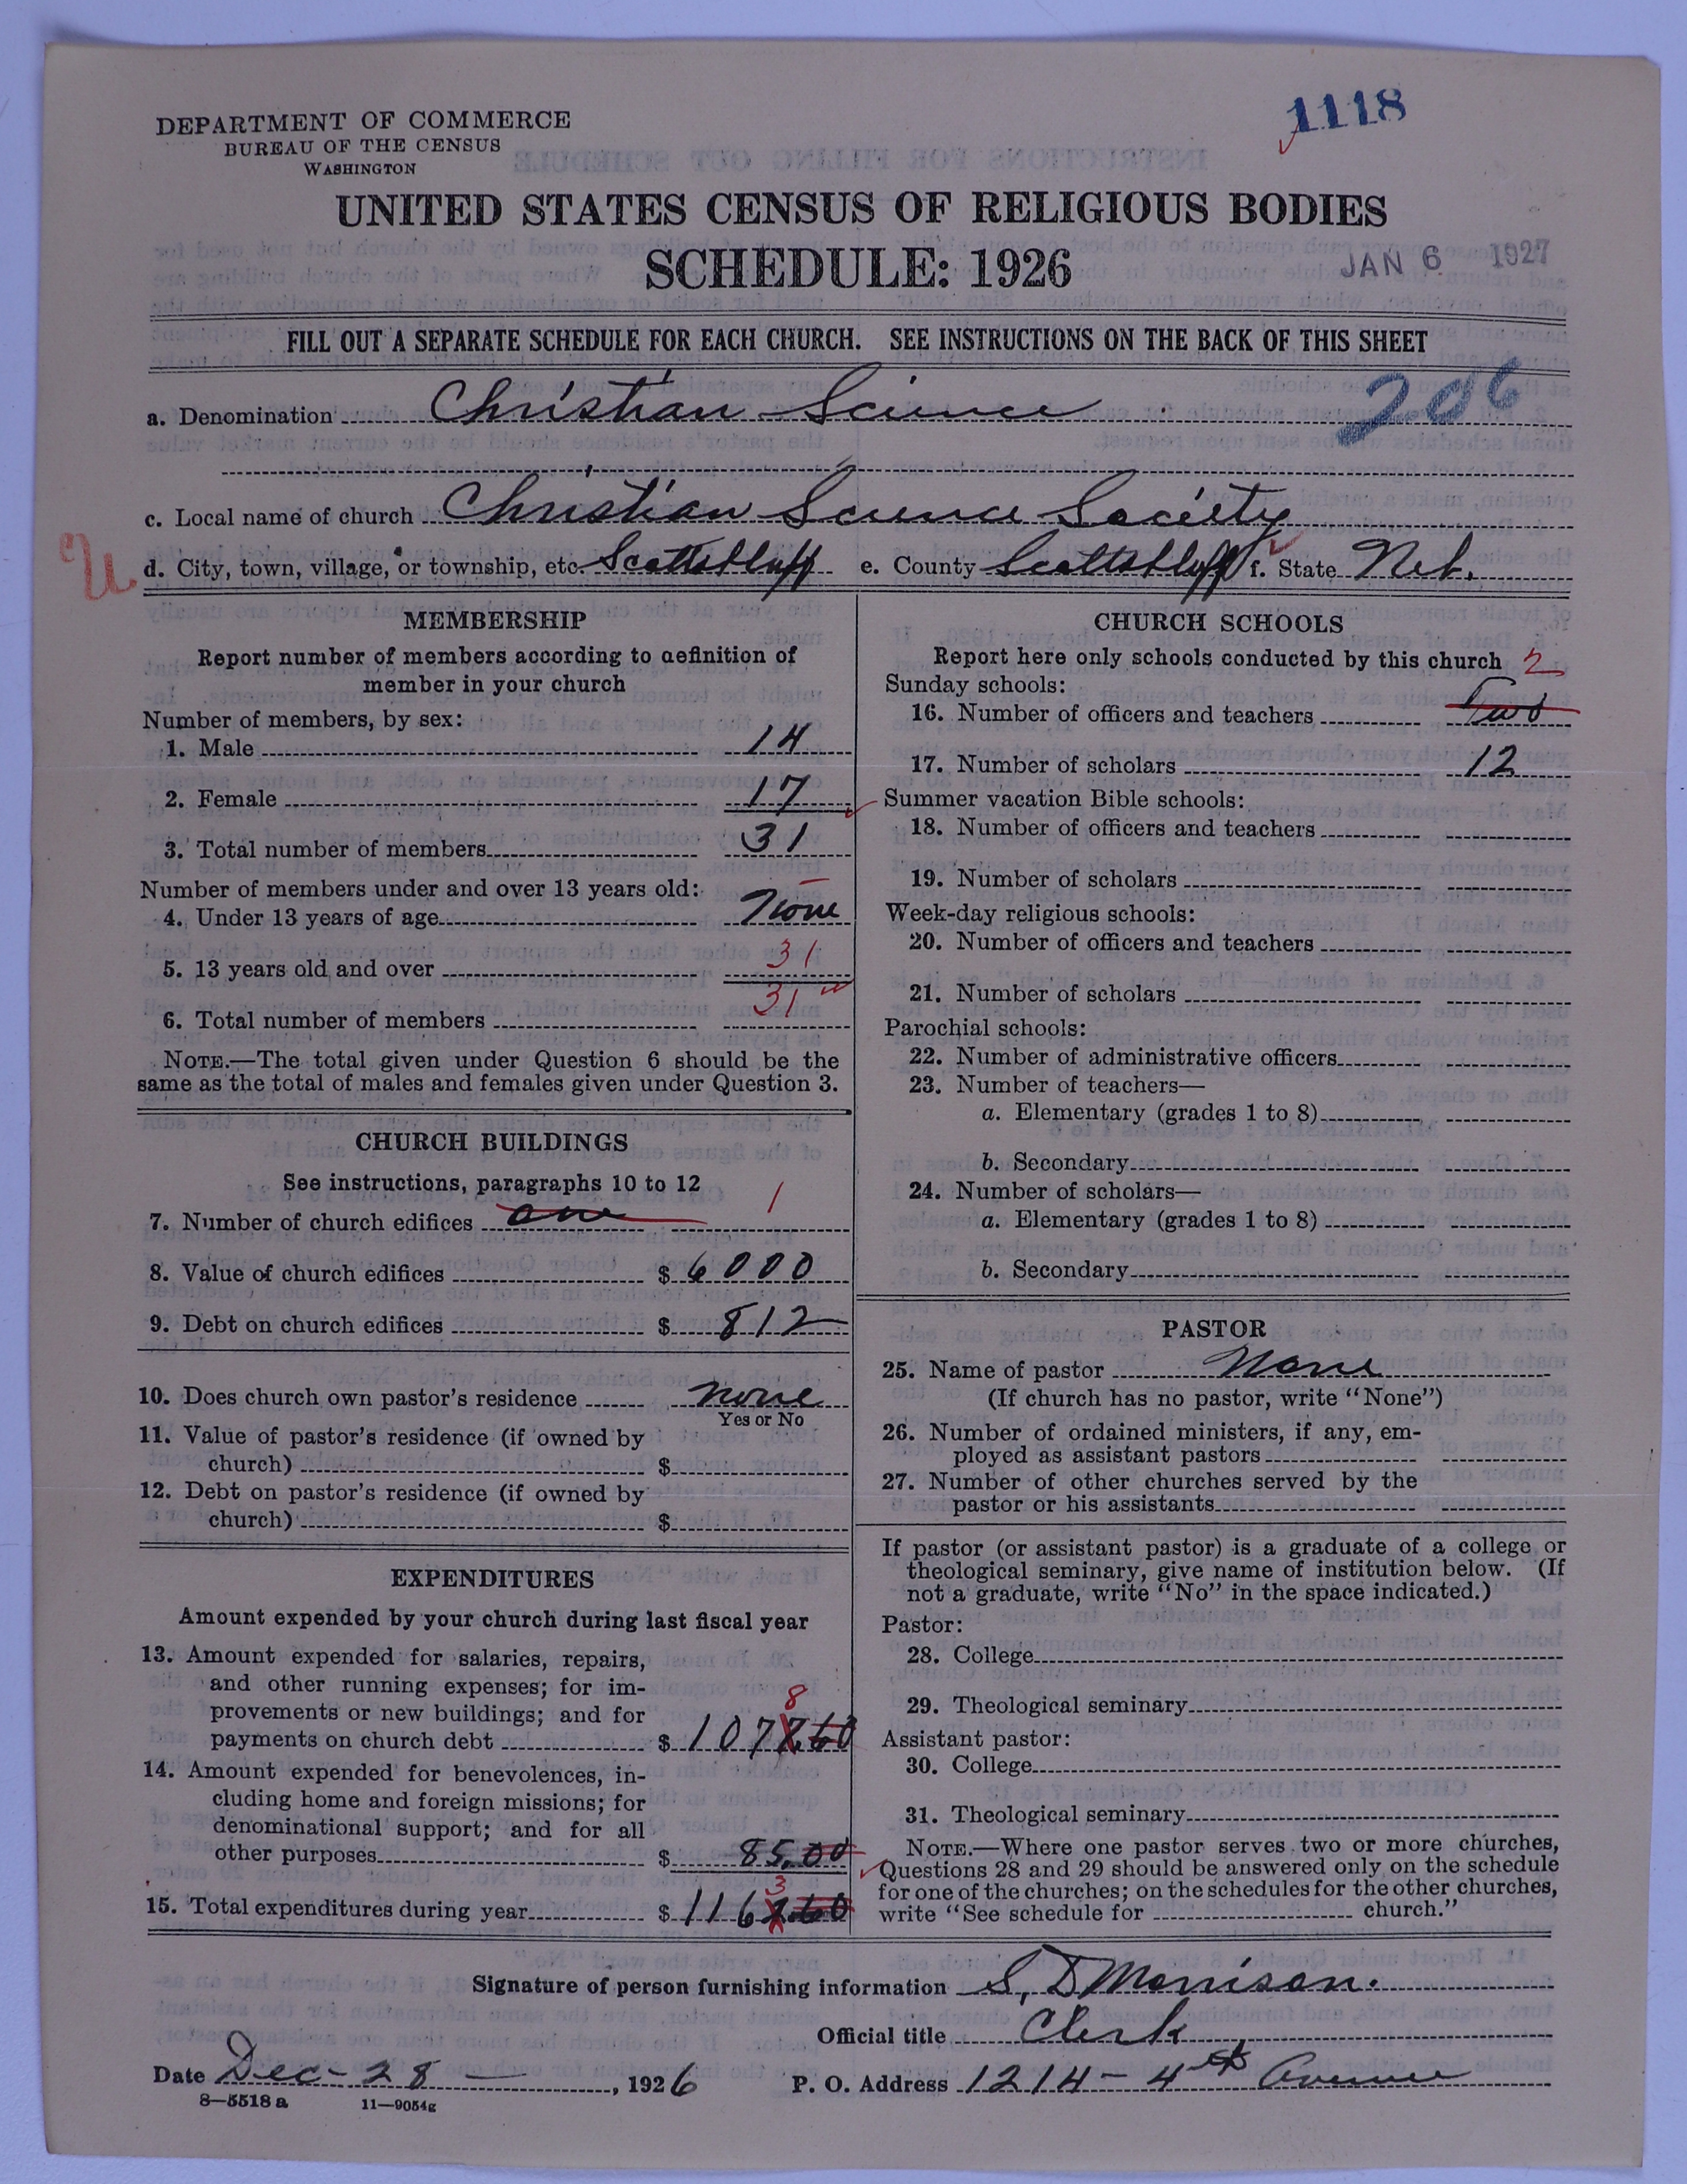 1118
DEPARTMENT OF COMMERCE
BUREAU OF THE CENSUS
WASHINGTON
UNITED STATES CENSUS OF RELIGIOUS BODIES
SCHEDULE: 1926
JAN 6 1927
FILL OUT A SEPARATE SCHEDULE FOR EACH CHURCH. SEE INSTRUCTIONS ON THE BACK OF THIS SHEET
206
a. Denomination Christian Science
c. Local name of church Christian Science Society
U
d. City, town, village, or township, etc. Scottsbluff e. County Scottsbluff f. State Neb.
MEMBERSHIP
Report number of members according to definition of
member in your church
Number of members, by sex:
1. Male 14
2. Female 17
3. Total number of members 31
Number of members under and over 13 years old:
4. Under 13 years of age None
5. 13 years old and over 31
6. Total number of members 31
NOTE.—The total given under Question 6 should be the
same as the total of males and females given under Question 3.
CHURCH BUILDINGS
See instructions, paragraphs 10 to 12
7. Number of church edifices one 1
8. Value of church edifices $ 6000
9. Debt on church edifices $ 812
10. Does church own pastor's residence none
Yes or No
11. Value of pastor's residence (if owned by
church) $
12. Debt on pastor's residence (if owned by
church) $
EXPENDITURES
Amount expended by your church during last fiscal year
13. Amount expended for salaries, repairs,
and other running expenses; for im-
provements or new buildings; and for
8
payments on church debt $ 1077.60
14. Amount expended for benevolences, in-
cluding home and foreign missions; for
denominational support; and for all
other purposes $ 85.00
3
15. Total expenditures during year $ 1162.60
CHURCH SCHOOLS
Report here only schools conducted by this church
2
Sunday schools:
16. Number of officers and teachers Two
17. Number of scholars 12
Summer vacation Bible schools:
18. Number of officers and teachers
19. Number of scholars
Week-day religious schools:
20. Number of officers and teachers
21. Number of scholars
Parochial schools:
22. Number of administrative officers
23. Number of teachers—
a. Elementary (grades 1 to 8)
b. Secondary
24. Number of scholars—
a. Elementary (grades 1 to 8)
b. Secondary
PASTOR
25. Name of pastor None
(If church has no pastor, write "None")
26. Number of ordained ministers, if any, em-
ployed as assistant pastors
27. Number of other churches served by the
pastor or his assistants
If pastor (or assistant pastor) is a graduate of a college or
theological seminary, give name of institution below. (If
not a graduate, write "No" in the space indicated.)
Pastor:
28. College
29. Theological seminary
Assistant pastor:
30. College
31. Theological seminary
NOTE.—Where one pastor serves two or more churches,
Questions 28 and 29 should be answered only on the schedule
for one of the churches; on the schedules for the other churches,
write "See schedule for church."
Signature of person furnishing information S. D Morrison.
Official title Clerk
Date Dec- 28 —, 1926 P. O. Address 1214 - 4th Avenue
8—5518 a 11—9054g